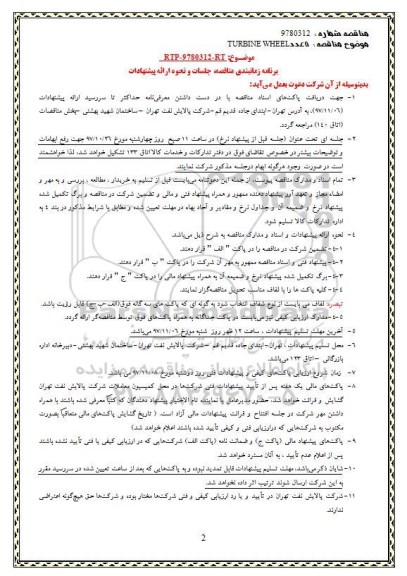 مناقصه شماره : 9780312
موضوع مناقصه : ۵عدد TURBINE WHEEL
موضوع: RTP-9780312-RT
برنامه زمانبندی مناقصه، جلسات و نحوه ارائه پیشنهادات
بدینوسیله از آن شرکت دعوت بعمل می‌آید:
۱- جهت دریافت پاکت‌های اسناد مناقصه با در دست داشتن معرفی‌نامه حداکثر تا سررسید ارائه پیشنهادات
(۹۷/۱۱/۰۶)، به آدرس تهران-ابتدای جاده قدیم قم-شرکت پالایش نفت تهران -ساختمان شهید بهشتی -بخش مناقصات
(اتاق ۱۴۰) مراجعه گردد.
۲- جلسه ای تحت عنوان (جلسه قبل از پیشنهاد نرخ) در ساعت ۱۱ صبح روز چهارشنبه مورخ ۹۷/۱۰/۲۶ جهت رفع ابهامات
و توضیحات بیشتر در خصوص تقاضای فوق در دفتر تدارکات و خدمات کالا اتاق ۱۳۳ تشکیل خواهد شد، لذا خواهشمند
است در صورت وجود هرگونه ابهام درجلسه مذکور شرکت نمایند.
۳- تمام اسناد و مدارک مناقصه پیوست از جمله این دعوتنامه می‌بایست قبل از تسلیم به خریدار ، مطالعه ، بررسی و به مهر و
امضاء مجاز و تعهد آور پیشنهاددهنده ممهور و همراه پیشنهاد فنی و مالی و تضمین شرکت در مناقصه و برگ تکمیل شده
پیشنهاد نرخ و ضمیمه آن و جداول نرخ و مقادیر و آحاد بهاء در مهلت تعیین شده و مطابق با شرایط مذکور در بند ٤ به
اداره تدارکات کالا تسلیم شود.
۴- نحوه ارائه پیشنهادات و اسناد و مدارک مناقصه به شرح ذیل می‌باشد.
۱-۴- تضمین شرکت در مناقصه را در پاکت " الف " قرار دهند.
۲-۴- پیشنهاد فنی و اسناد مناقصه ممهور به مهر آن شرکت را در پاکت " ب " قرار دهند.
۳-۴- برگ تکمیل شده پیشنهاد نرخ و ضمیمه آن به همراه پیشنهاد مالی را در پاکت " ج " قرار دهند.
۴-۴- کلیه پاکت ها را با لفاف مناسب تحویل مناقصه‌گزار نمایند.
تبصره: لفاف می بایست از نوع شفاف انتخاب شود به گونه ای که پاکت های سه گانه فوق (الف-ب-ج) قابل رؤیت باشد.
۵-۴- مدارک ارزیابی کیفی نیز می‌بایست در پاکت جداگانه به همراه پاکت‌های فوق توسط مناقصه‌گر ارائه گردد.
۵- آخرین مهلت تسلیم پیشنهادات ، ساعت ۱۲ ظهر روز شنبه مورخ ۹۷/۱۱/۰۶ می‌باشد.
۶- محل تسلیم پیشنهادات ، تهران-ابتدای جاده قدیم قم -شرکت پالایش نفت تهران-ساختمان شهید بهشتی-دبیرخانه اداره
بازرگانی -اتاق ۱۲۳ می باشد.
۷- زمان شروع ارزیابی پاکت‌های کیفی و پیشنهادات فنی روز دوشنبه مورخ ۹۷/۱۱/۰۸ می باشد.
۸- پاکت‌های مالی یک هفته پس از تأیید پیشنهادات فنی شرکت‌ها در محل کمیسیون معاملات شرکت پالایش نفت تهران
گشایش و قرائت خواهد شد. حضور مدیرعامل یا نماینده تام الاختیار پیشنهاد دهندگان که کتباً معرفی شده باشند با همراه
داشتن مهر شرکت در جلسه افتتاح و قرائت پیشنهادات مالی آزاد است. ( تاریخ گشایش پاکت‌های مالی متعاقباً بصورت
مکتوب به شرکت‌هایی که در ارزیابی فنی و کیفی تأیید شده باشند اعلام خواهد شد)
۹- پاکت‌های پیشنهاد مالی (پاکت ج) و ضمانت نامه (پاکت الف) شرکت‌هایی که در ارزیابی کیفی یا فنی تأیید نشده باشند
پس از اعلام عدم تأیید ، به آنان مسترد خواهد شد.
۱۰- شایان ذکر می‌باشد، مهلت تسلیم پیشنهادات قابل تمدید نبوده و به پاکت‌هایی که بعد از ساعت تعیین شده در سررسید مقرر
به این شرکت ارسال شوند ترتیب اثر داده نخواهد شد.
۱۱- شرکت پالایش نفت تهران در تأیید و یا رد ارزیابی کیفی و فنی شرکت‌ها مختار بوده و شرکت‌ها حق هیچ‌گونه اعتراضی
ندارند.
2